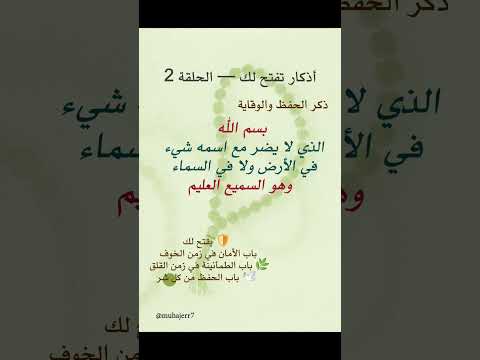 أذكار تفتح لك — الحلقة 2
ذكر الحفظ والوقاية
بسم الله
الذي لا يضر مع اسمه شيء
في الأرض ولا في السماء
وهو السميع العليم
🛡️ يفتح لك
باب الأمان في زمن الخوف
🌿 باب الطمأنينة في زمن القلق
🕊️ باب الحفظ من كل شر
@muhajerr7